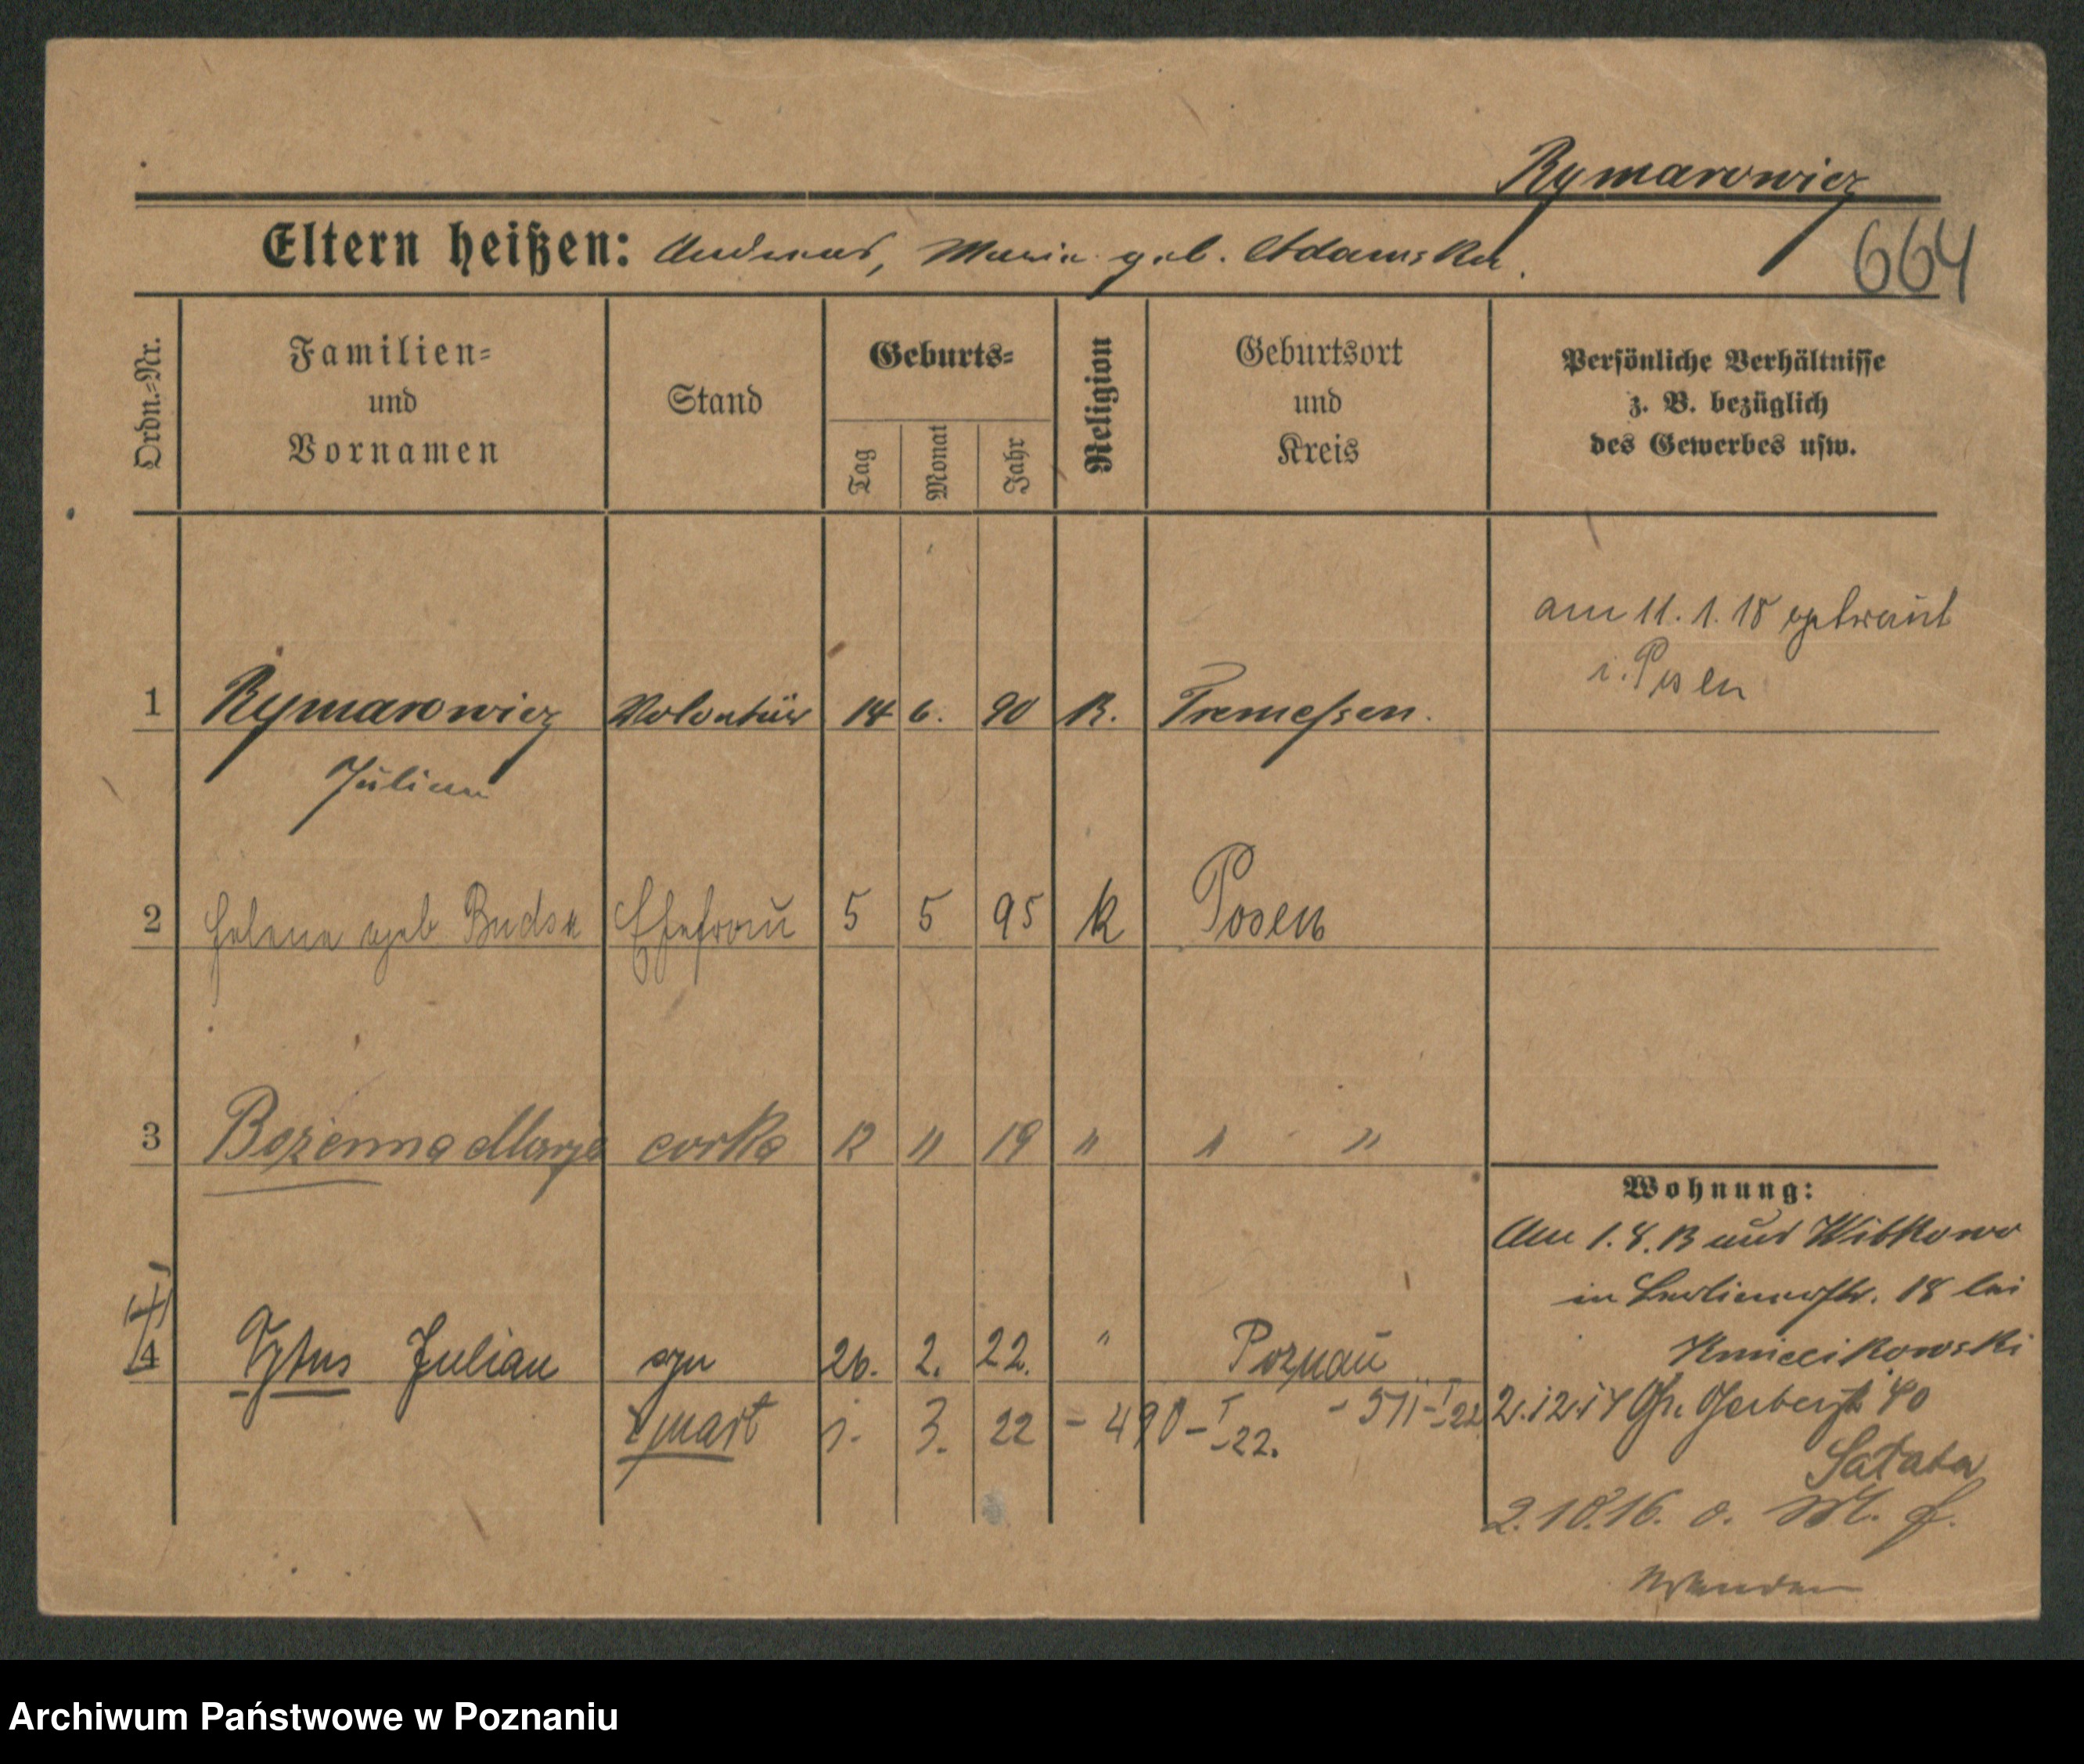 Rymarowicz
Eltern heißen: Andreas, Maria geb. Adamska.
664
Ordn.-Nr.
Familien-
und
Vornamen
Stand
Geburts-
Tag
Monat
Jahr
Religion
Geburtsort
und
Kreis
Persönliche Verhältnisse
z. B. bezüglich
des Gewerbes usw.
am 11. 1. 18 getraut
i. Posen
1 Rymarowicz Volontär 14 6. 90 K. Tremessen.
Julian
2 Helene geb Budsk Ehefrau 5 5 95 k Posen
3 Bożenna Marja corka 12 " 19 " " "
Wohnung:
Am 1. 8. 13 aus Witkowo
in Berlinerstr. 18 bei
Kmiecikowski
4 Tytus Julian syn 26. 2. 22. " Poznań
zmarł 1. 3. 22 - 490-I-22. - 511-I-22
2.12.14 Gr. Gerberstr 40
Sałata
2.10.16. o. M. f.
Wenden
Archiwum Państwowe w Poznaniu